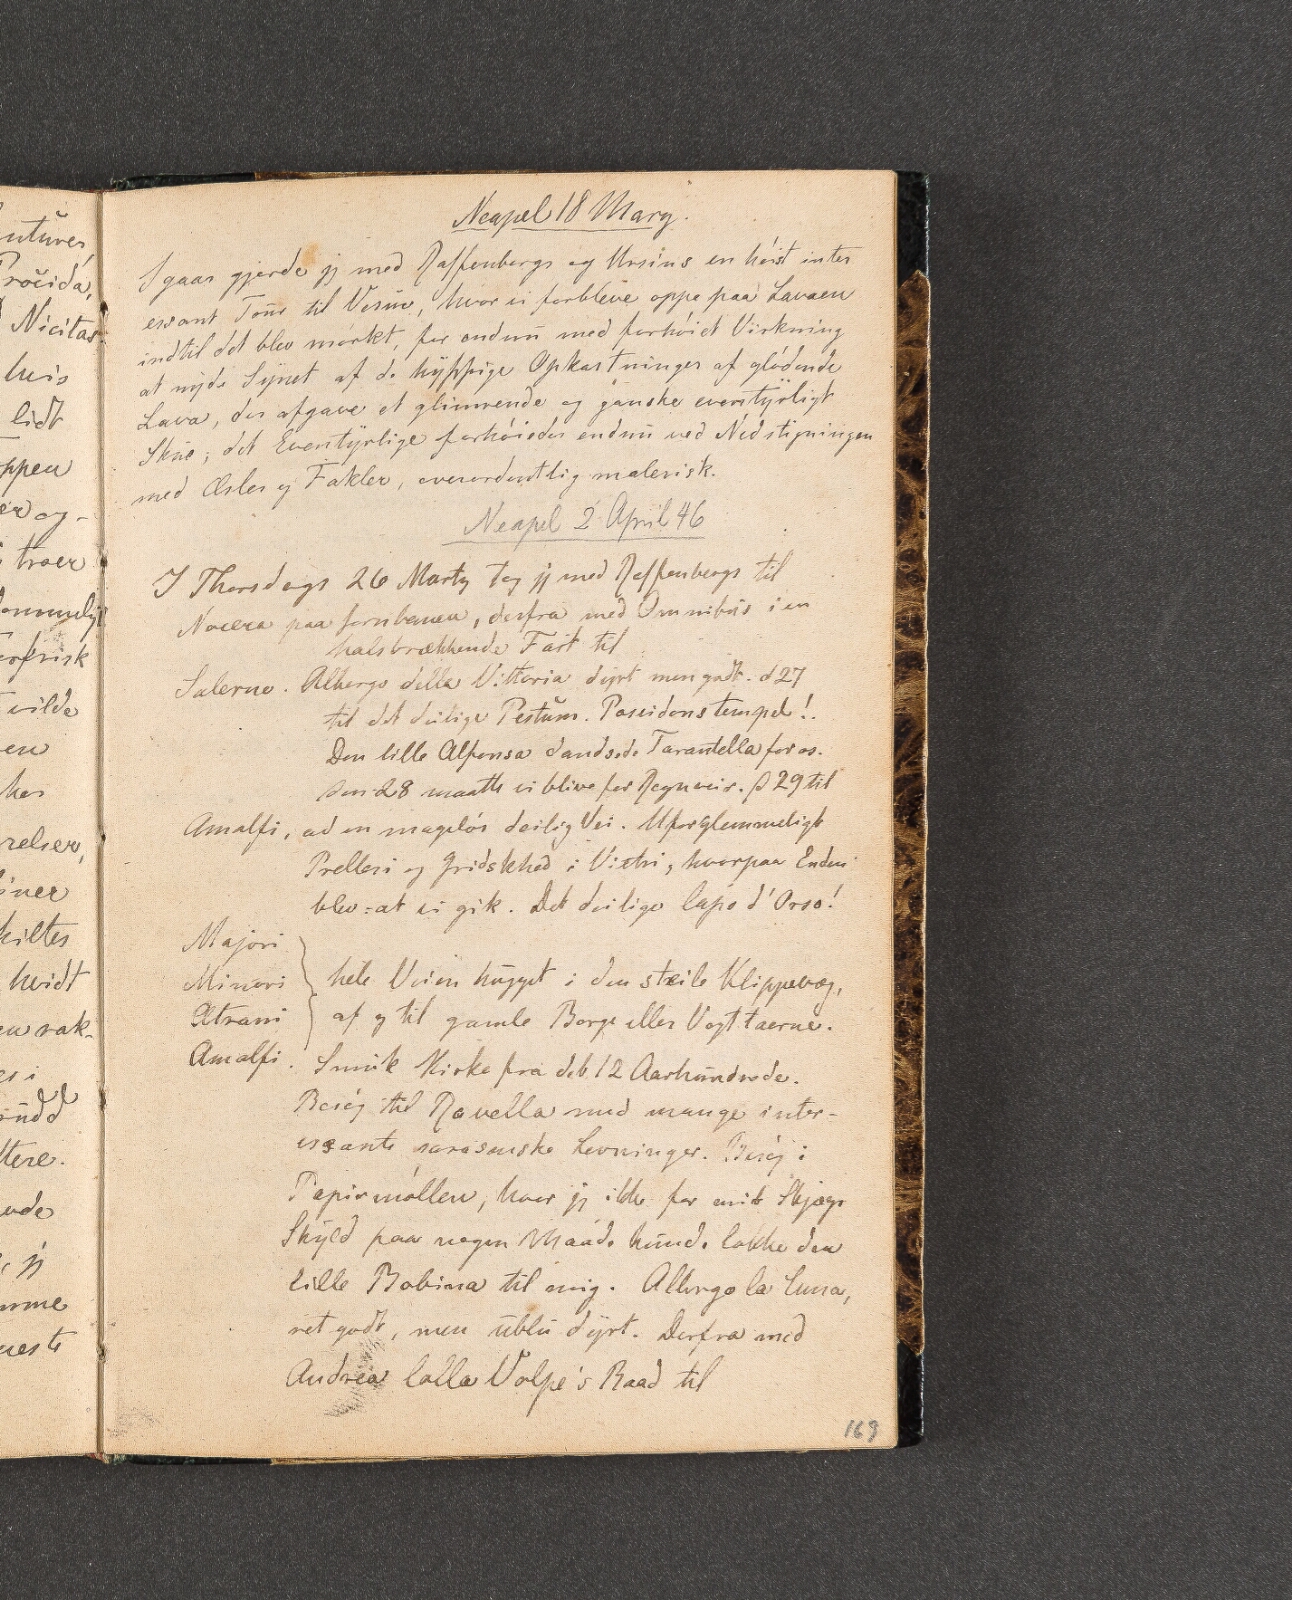 Neapel 18 Marz.
Igaar gjorde jj med Raffenbergs og Ursins en höist inter
essant Tour til Vesuv, hvor vi forbleve oppe paa Lavaen
indtil det blev mörkt, for endnu med forhöiet Virkning
at nyde Synet af de hyppige Opkastninger af glödende
Lava, der afgave et glimrende og ganske eventyrligt
Skue; det Eventyrlige forhöiedes endnu ved Nedstigningen
med Æsler og Fakler, overordentlig malerisk.
Neapel 2 April 46
I Thorsdags 26 Marty tog jj med Raffenbergs til
Nocera paa Jernbanen, derfra med Omnibus i en
halsbrækkende Fart til
Salerno. Albergo della Vittoria dyrt men godt. d 27
til det deilige Pestum. Poseidons tempel!.
Den lille Alfonsa dandsede Tarantella for os.
Den 28 maatte vi blive for Regnveir. D 29 til
Amalfi, ad en magelös deilig Vei. Uforglemmeligt
Prelleri og Gridskhed i Vietri, hvorpaa Enden
blev at vi gik. Det deilige Capo d'Orso!
Majori
Minori hele Veien hugget i den steile Klippevæg,
Atrani af og til gamle Borge eller Vagttaarne.
Amalfi. Smuk Kirke fra det 12 Aarhundrede.
Besög til Ravella med mange inter-
essante sarasenske Levninger. Besög i
Papirmöllen, hvor jj ikke for mit Skjægs
Skyld paa nogen Maade kunde lokke den
lille Bobina til mig. Albergo la Luna,
ret godt, men ublu dyrt. Derfra med
Andrea Volpe's Baad til
169
utures
Procida,
Nicitas
hvis
lidt
oppen
er og-
troer
vilde
en
hos
relser,
hvidt
ttere.
jj